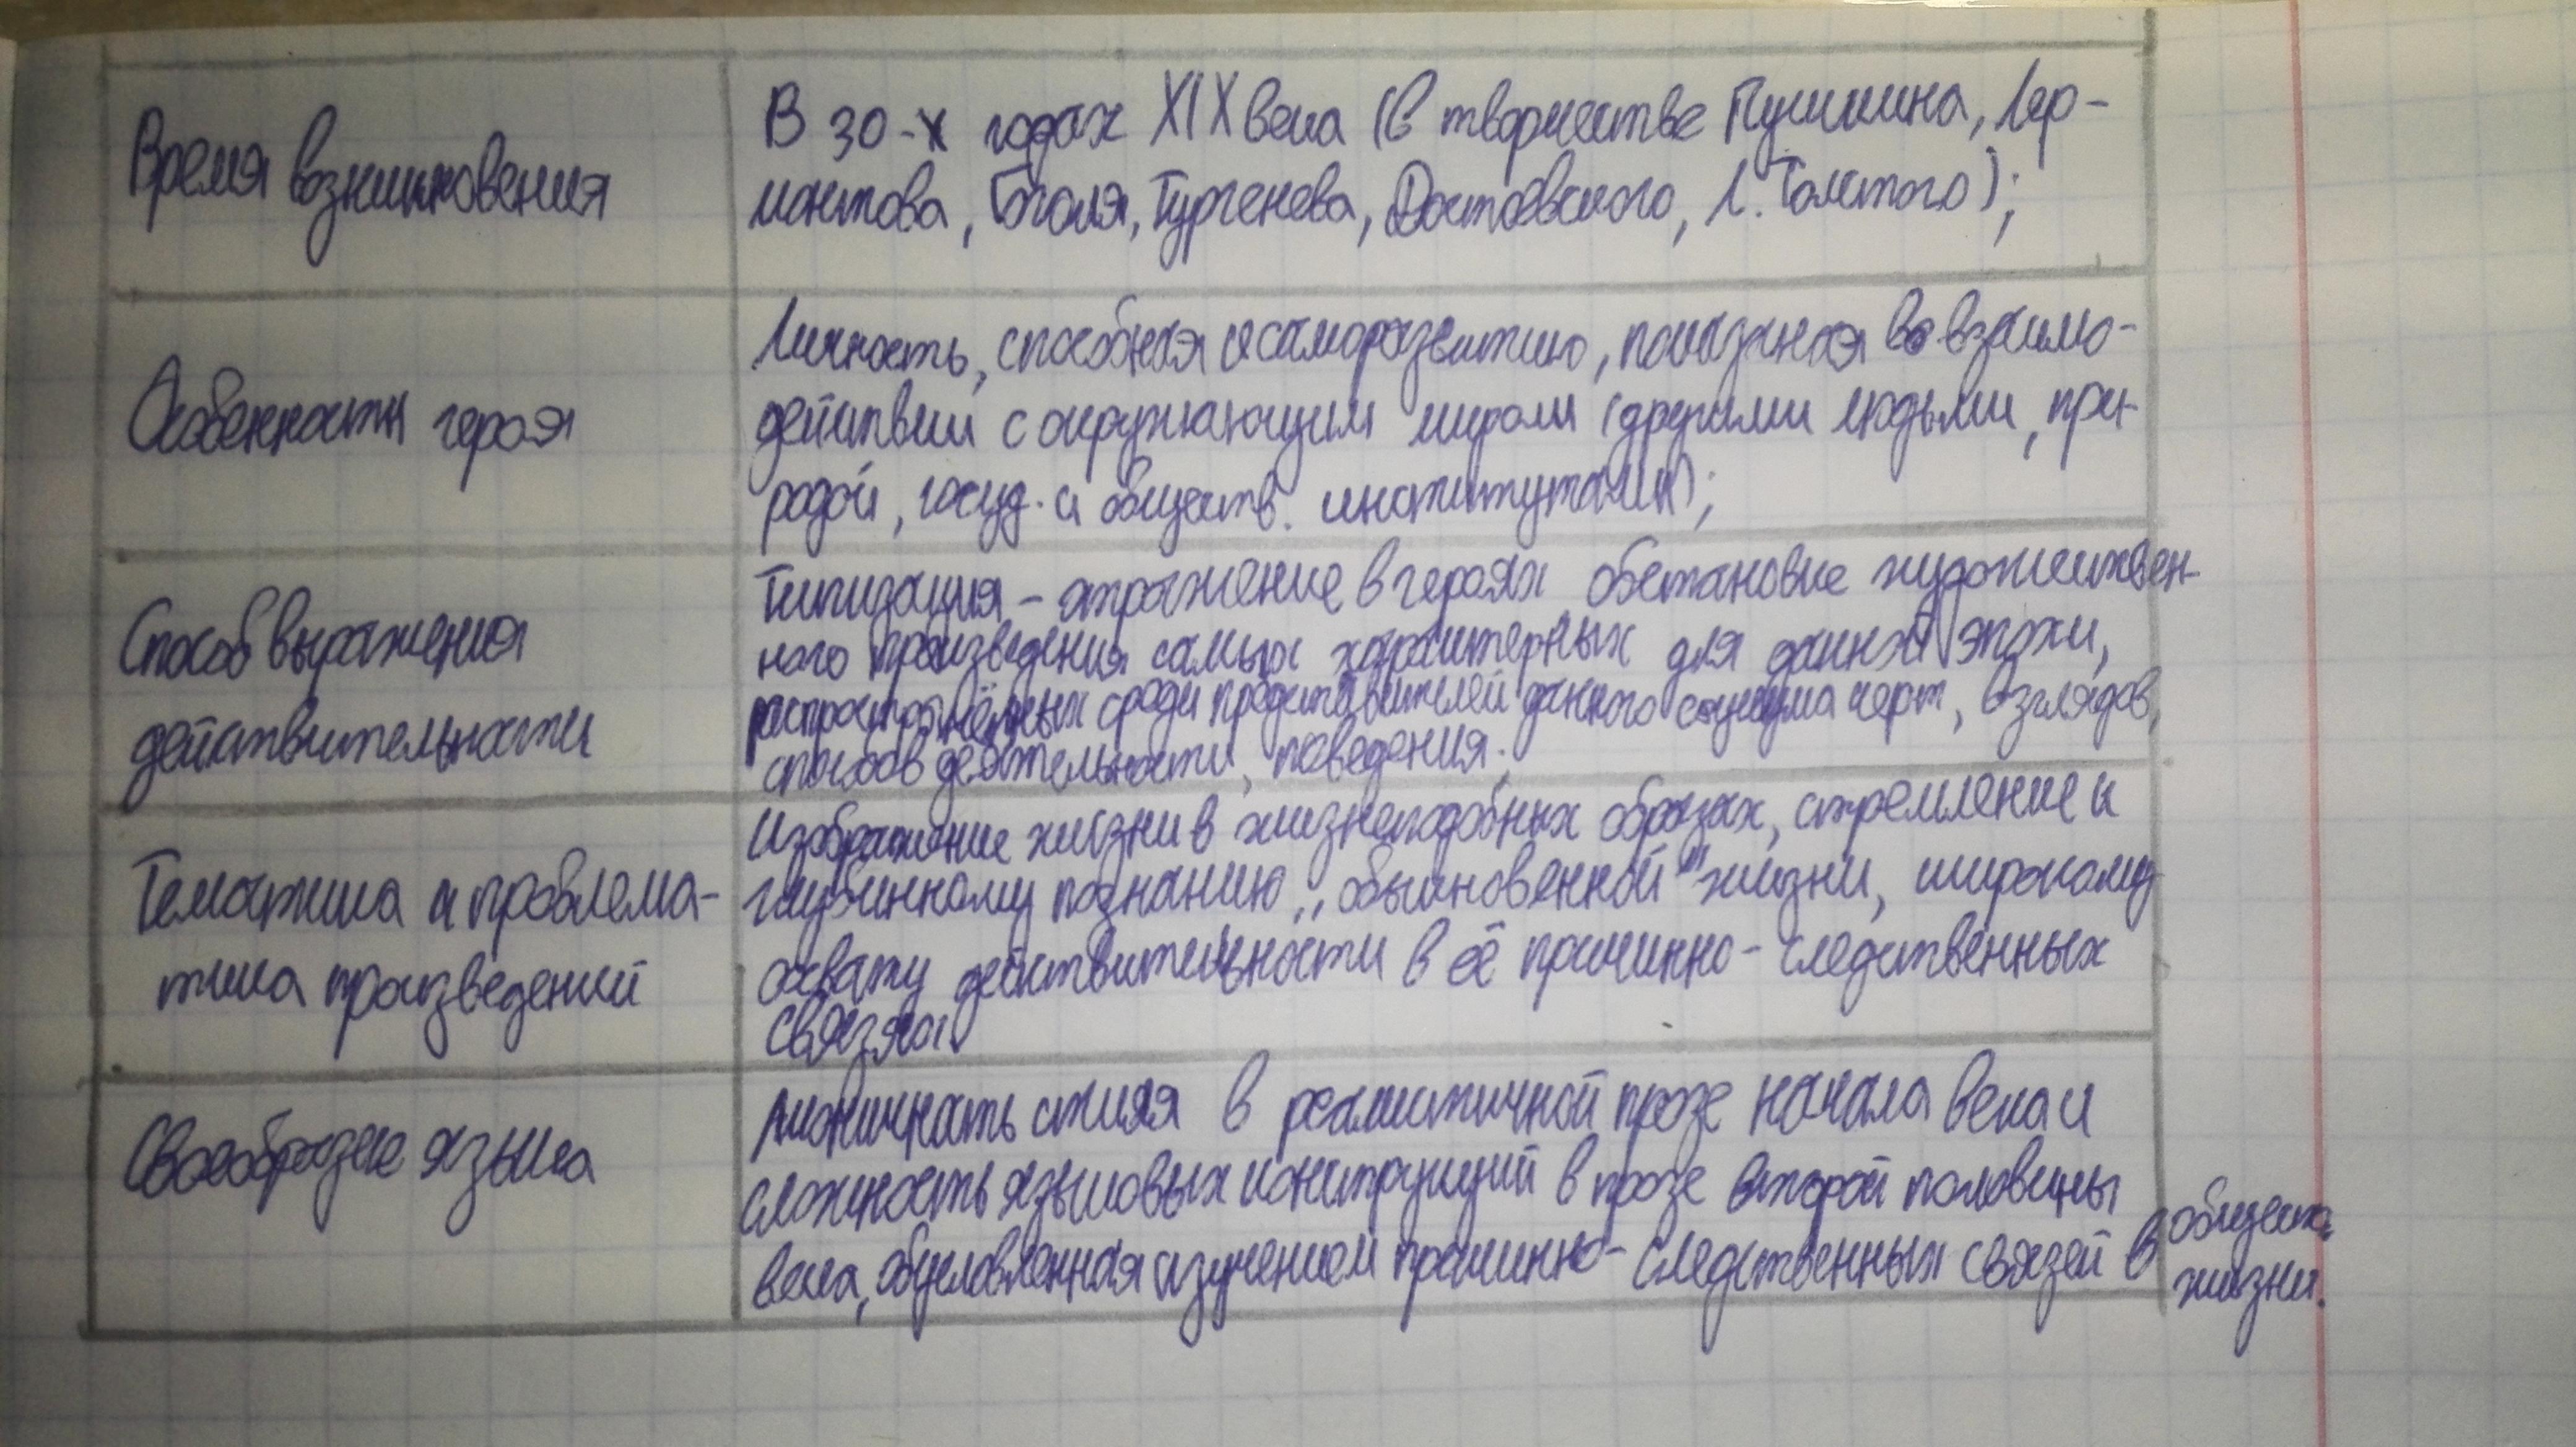 Время возникновения
В 30-х годах XIX века (в творчестве Пушкина, Лер-
монтова, Гоголя, Тургенева, Достоевского, Л. Толстого);
Особенности героя
Личность, способная к саморазвитию, показанная во взаимо-
действии с окружающим миром (другими людьми, при-
родой, госуд. и обществ. институтами);
Способ выражения
действительности
Типизация - отражение в героях обстановке художествен-
ного произведения самых характерных для данной эпохи,
распространённых среди представителей данного социума черт, взглядов,
способов деятельности, поведения;
Тематика и проблема-
тика произведений
Изображение жизни в жизнеподобных образах, стремление к
глубинному познанию „обыкновенной" жизни, широкому
охвату действительности в её причинно-следственных
связях.
Своеобразие языка
Лаконичность стиля в реалистичной прозе начала века и
сложность языковых конструкций в прозе второй половины
века, обусловленная изучением причинно-следственных связей в
обществ.
жизни.